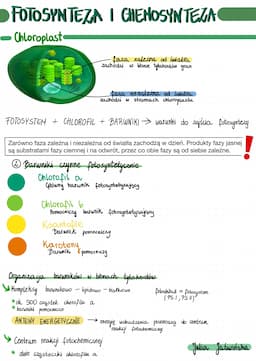 FOTOSYNTEZA I CHEMOSYNTEZA
Chloroplast
faza zależna od światła
zachodzi w błonie tylakoidów gran
faza niezależna od światła
zachodzi w stromach chloroplastu
FOTOSYSTEM + CHLOROFIL + BARWNIKI → warunki do zajścia fotosyntezy
Zarówno faza zależna i niezależna od światła zachodzą w dzień. Produkty fazy jasnej
są substratami fazy ciemnej i na odwrót, przez co obie fazy są od siebie zależne.
Barwniki czynne fotosyntetycznie
Chlorofil a
Główny barwnik fotosyntetyzujący
Chlorofil b
Pomocniczy barwnik fotosyntetyzujący
Ksantofile
Barwnik pomocniczy
Karoteny
Barwnik pomocniczy
Organizacja barwników w błonach tylakoidów
Kompleksy barwnikowo - lipidowo - białkowe
ok. 300 cząstek chlorofilu a
barwniki pomocnicze
ANTENY ENERGETYCZNE →
Centrum reakcji fotochemicznej
dwie cząsteczki chlorofilu a